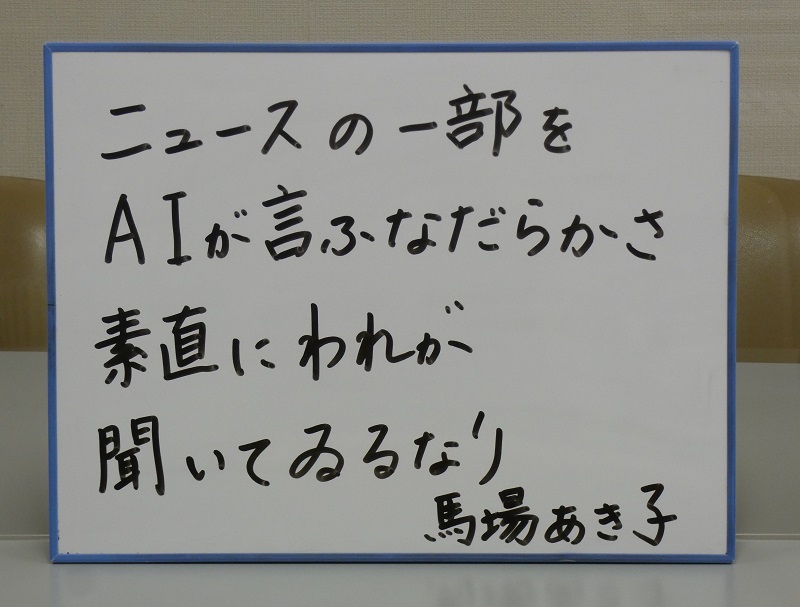 ニュースの一部を
AIが言ふなだらかさ
素直にわれが
聞いてゐるなり
馬場あき子